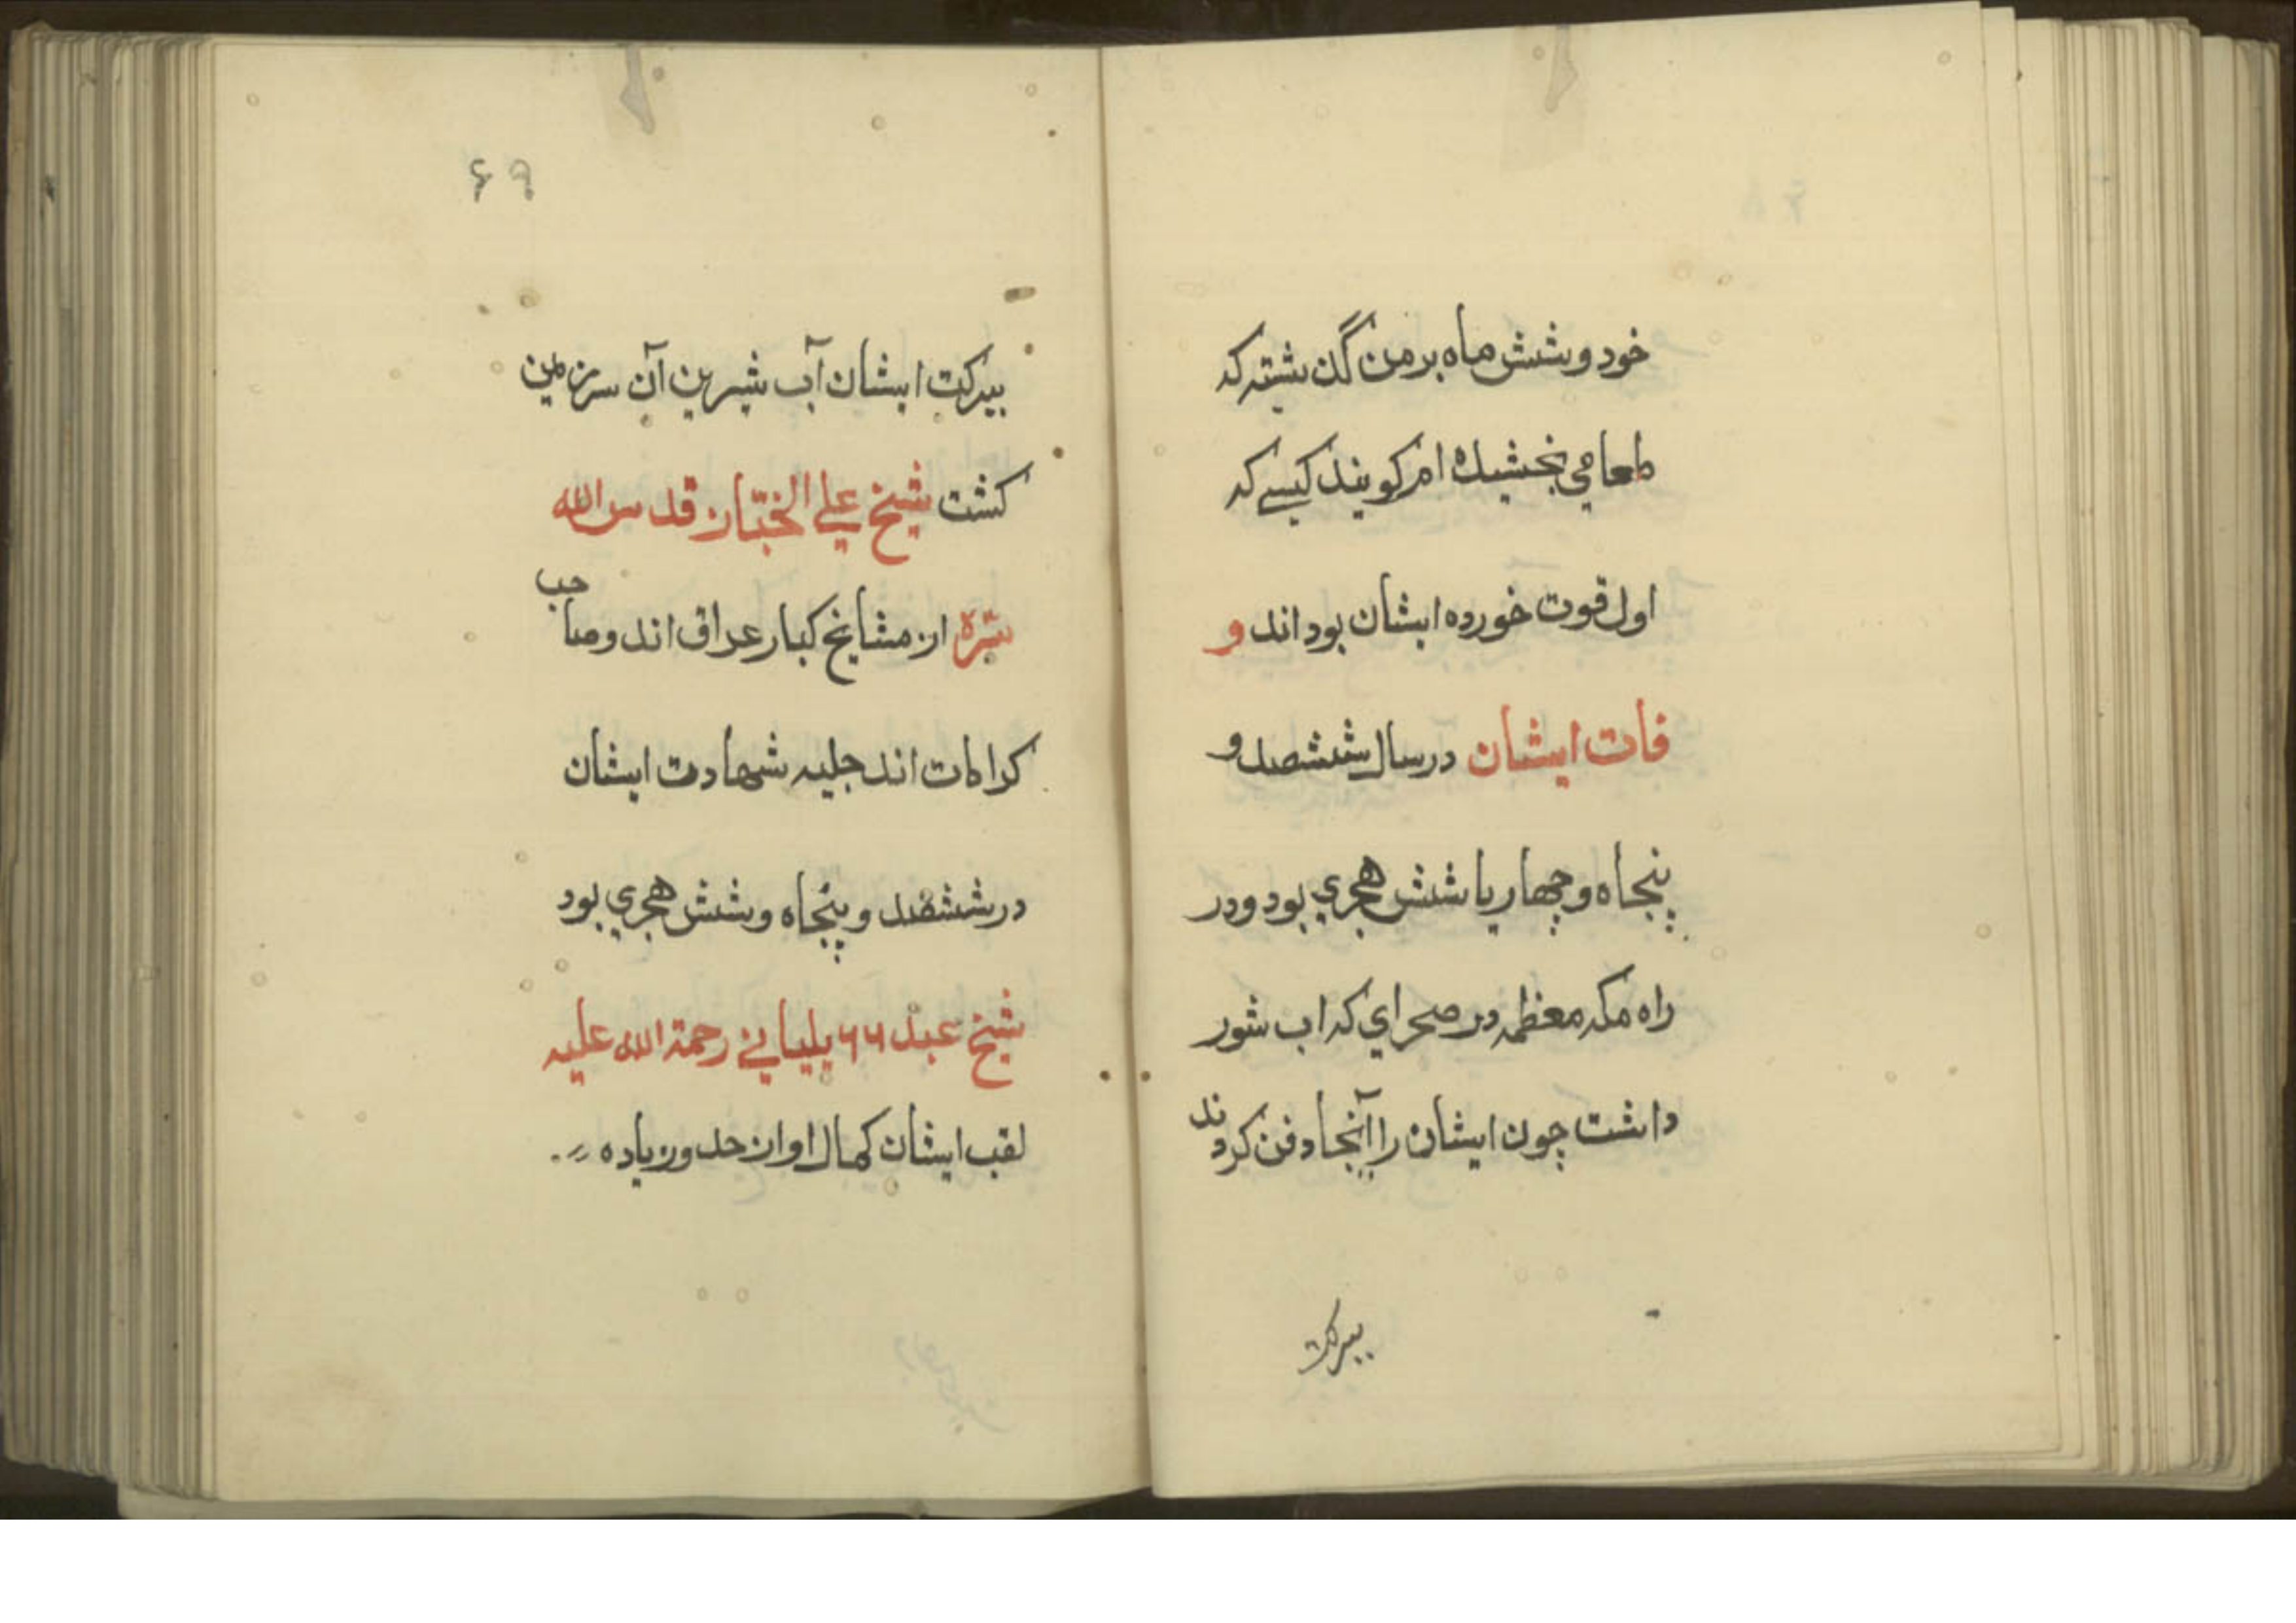 خود و شش ماه بر من گذشته که
طعامی نخشیده ام کویند کیسے که
اول قوت خورده ایشان بود اند و
فات ایشان در سال ششصد و
پنجاه و چهار یا شش هجري بود و در
راه مکه معظمه در صحراي که اب شور
داشت چون ایشان را آنجا دفن کردند
ببرکت
۶۹
ببرکت ایشان آب شیرین آن سرزمین
کشت شیخ علي الخبّاز قدس الله
سرّه از مشایخ کبار عراق اند و صاحب
کرامات اند جلیه شهادت ایشان
در ششصد و پنجاه و شش هجري بود
شیخ عبد بلیانے رحمة الله علیه
لقب ایشان کمال او از حد و زیاده